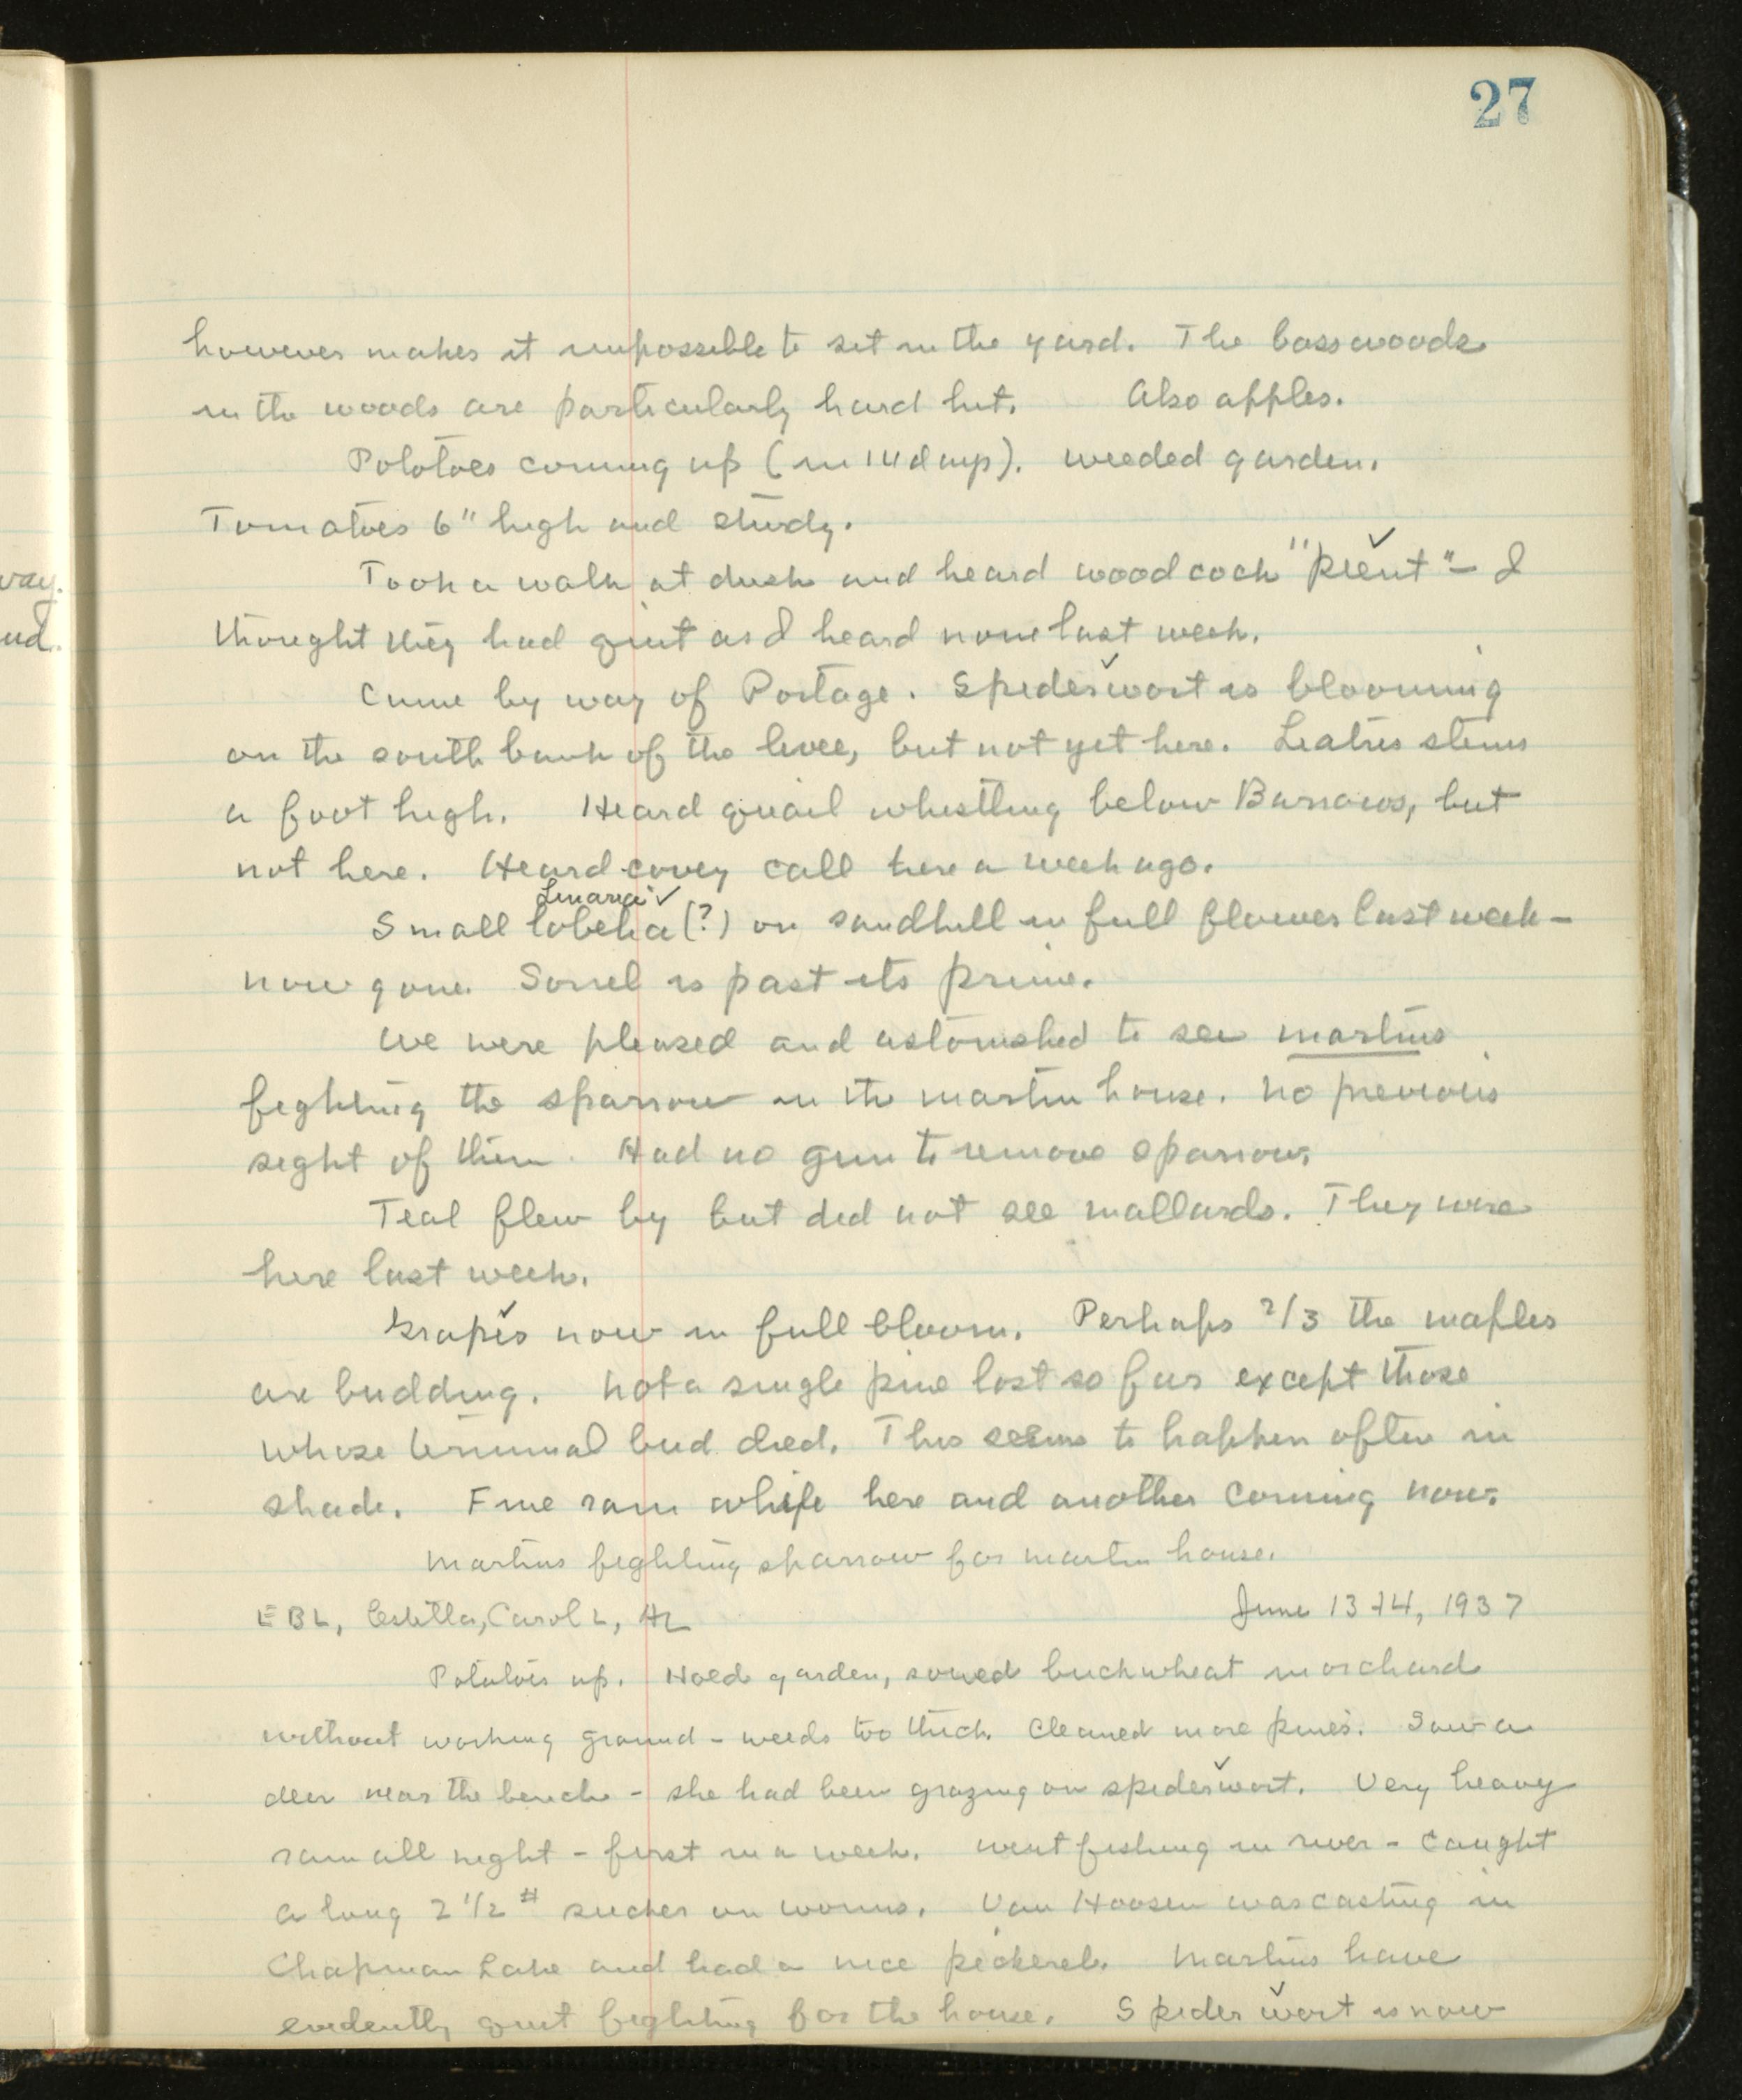 27
however makes it impossible to sit in the yard. The basswoods
in the woods are particularly hard hit. Also apples.
Potatoes coming up (in 14 days). Weeded garden.
Tomatoes 6" high and sturdy.
Took a walk at dusk and heard woodcock "pient" - I
thought they had quit as I heard none last week.
Came by way of Portage. Spiderwort is blooming
on the south bank of the levee, but not yet here. Liatris stems
a foot high. Heard quail whistling below Barrows, but
not here. Heard covey call here a week ago.
Linaria ✓
Small lobelia (?) on sandhill in full flower last week -
now gone. Sorrel is past its prime.
We were pleased and astonished to see martins
fighting the sparrow in the martin house. No previous
sight of them. Had no gun to remove sparrow.
Teal flew by but did not see mallards. They were
here last week.
Grapes now in full bloom. Perhaps 2/3 the maples
are budding. Not a single pine lost so far except those
whose terminal bud died. This seems to happen often in
shade. Fine rain while here and another coming now.
Martins fighting sparrow for martin house.
EBL, Estella, Carol L, AL June 13-14, 1937
Potatoes up. Hoed garden, sowed buckwheat in orchard
without working ground - weeds too thick. Cleaned more pines. Saw a
deer near the bench - she had been grazing on spiderwort. Very heavy
rain all night - first in a week. Went fishing in river - caught
a long 2 1/2 # sucker on worms. Van Hoosen was casting in
Chapman Lake and had a nice pickerel. Martins have
evidently quit fighting for the house. Spiderwort is now
vay.
ud.